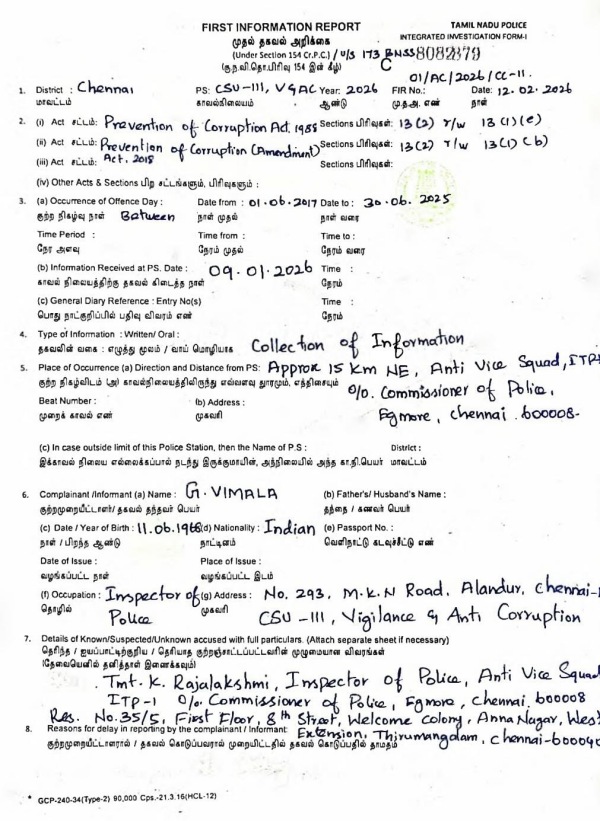 FIRST INFORMATION REPORT
TAMIL NADU POLICE
முதல் தகவல் அறிக்கை
INTEGRATED INVESTIGATION FORM-I
(Under Section 154 Cr.P.C.) / U/S 173 BNSS 8082879
(கு.ந.வி.தொ.பிரிவு 154 இன் கீழ்) C
01/AC/2026/CC-II.
1. District : Chennai PS: CSU-III, V&AC Year: 2026 FIR No.: Date: 12.02.2026
மாவட்டம் காவல்நிலையம் ஆண்டு மு.த.அ. எண் நாள்
2. (i) Act சட்டம்: Prevention of Corruption Act 1988 Sections பிரிவுகள்: 13(2) r/w 13(1)(e)
(ii) Act சட்டம்: Prevention of Corruption (Amendment) Sections பிரிவுகள்: 13(2) r/w 13(1)(b)
(iii) Act சட்டம்: Act. 2018 Sections பிரிவுகள்:
(iv) Other Acts & Sections பிற சட்டங்களும், பிரிவுகளும் :
3. (a) Occurrence of Offence Day : Date from : 01.06.2017 Date to : 30.06.2025
குற்ற நிகழ்வு நாள் Between நாள் முதல் நாள் வரை
Time Period : Time from : Time to :
நேர அளவு நேரம் முதல் நேரம் வரை
(b) Information Received at PS. Date : 09.01.2026 Time :
காவல் நிலையத்திற்கு தகவல் கிடைத்த நாள் நேரம்
(c) General Diary Reference : Entry No(s) Time :
பொது நாட்குறிப்பில் பதிவு விவரம் எண் நேரம்
4. Type of Information : Written/ Oral :
தகவலின் வகை : எழுத்து மூலம் / வாய் மொழியாக Collection of Information
5. Place of Occurrence (a) Direction and Distance from PS: Approx 15 Km NE, Anti Vice Squad, ITP-
குற்ற நிகழ்விடம் (அ) காவல்நிலையத்திலிருந்து எவ்வளவு தூரமும், எத்திசையும் O/o. Commissioner of Police,
Beat Number : (b) Address : Egmore, Chennai. 600008-
முறைக் காவல் எண் முகவரி
(c) In case outside limit of this Police Station, then the Name of P.S : District :
இக்காவல் நிலைய எல்லைக்கப்பால் நடந்து இருக்குமாயின், அந்நிலையில் அந்த கா.நி.பெயர் மாவட்டம்
6. Complainant /Informant (a) Name : G. VIMALA (b) Father's/ Husband's Name :
குற்றமுறையீட்டாளர்/ தகவல் தந்தவர் பெயர் தந்தை / கணவர் பெயர்
(c) Date / Year of Birth : 11.06.1968 (d) Nationality : Indian (e) Passport No. :
நாள் / பிறந்த ஆண்டு நாட்டினம் வெளிநாட்டு கடவுச்சீட்டு எண்
Date of Issue : Place of Issue :
வழங்கப்பட்ட நாள் வழங்கப்பட்ட இடம்
(f) Occupation : Inspector of (g) Address : No. 293, M.K.N Road, Alandur, Chennai-
தொழில் Police முகவரி CSU-III, Vigilance & Anti Corruption
7. Details of Known/Suspected/Unknown accused with full particulars. (Attach separate sheet if necessary)
தெரிந்த / ஐயப்பாட்டிற்குரிய / தெரியாத குற்றஞ்சாட்டப்பட்டவரின் முழுமையான விவரங்கள்
(தேவையெனில் தனித்தாள் இணைக்கவும்)
Tmt. K. Rajalakshmi, Inspector of Police, Anti Vice Squad
ITP-1 O/o. Commissioner of Police, Egmore, Chennai. 600008
Res. No.35/5, First Floor, 8th Street, Welcome Colony, Anna Nagar, West
8. Reasons for delay in reporting by the complainant / Informant: Extension, Thirumangalam, Chennai-600040
குற்றமுறையீட்டாளரால் / தகவல் கொடுப்பவரால் முறையீட்டில் தகவல் கொடுப்பதில் தாமதம்
* GCP-240-34(Type-2) 90,000 Cps.-21.3.16(HCL-12)